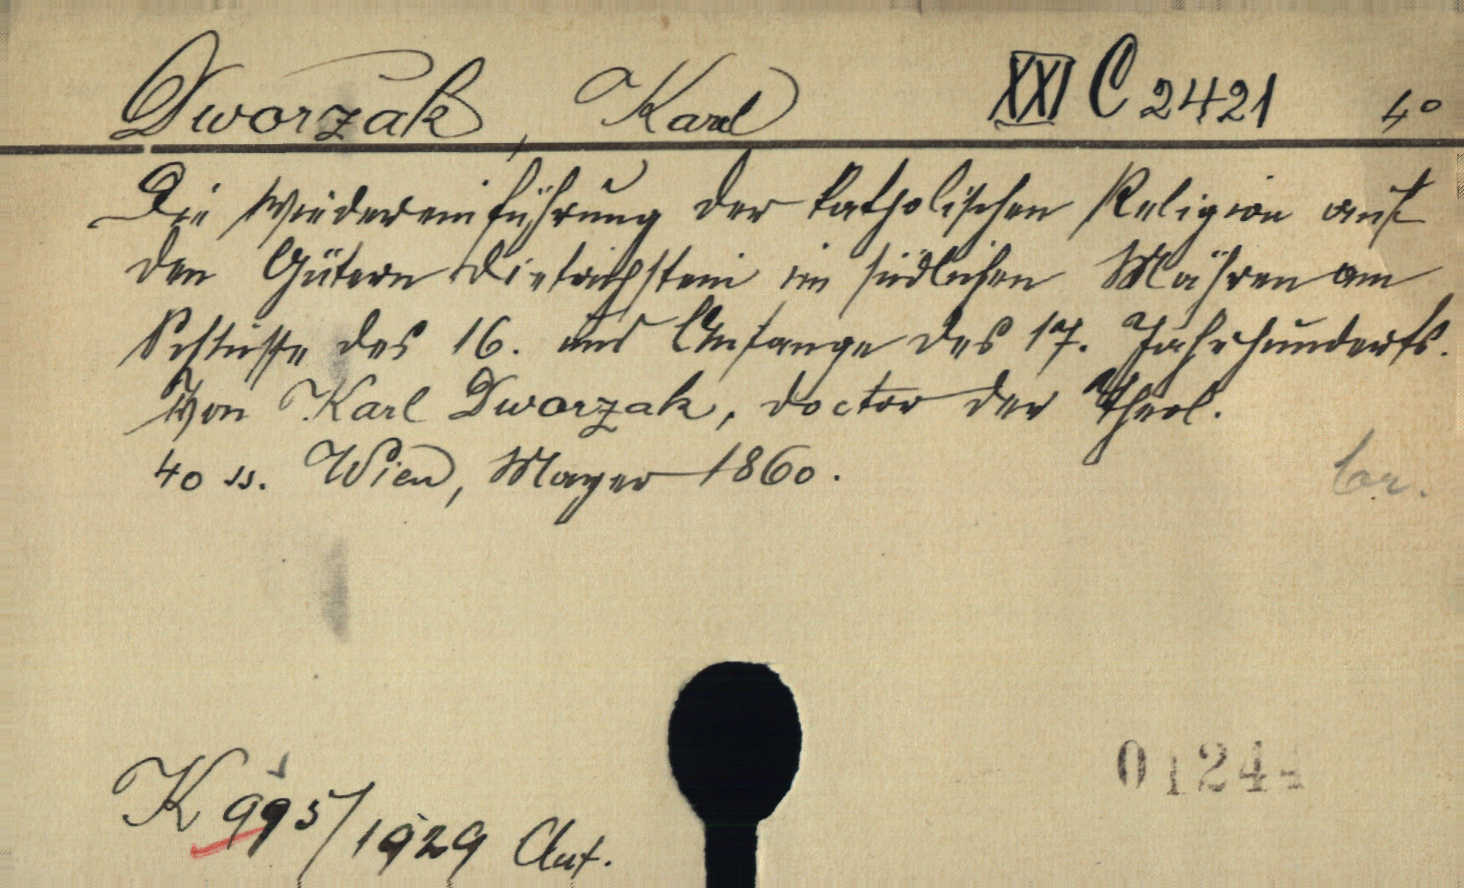 Dworzak, Karl XXI C 2421 4°
Die Wiedereinführung der katholischen Religion auf
den Gütern Dietrichstein im südlichen Mähren am
Schlusse des 16. und Anfange des 17. Jahrhunderts.
Von Karl Dworzak, Doctor der Theol.
40 ss. Wien, Mayer 1860.
K 995/1929 Ant.
01244